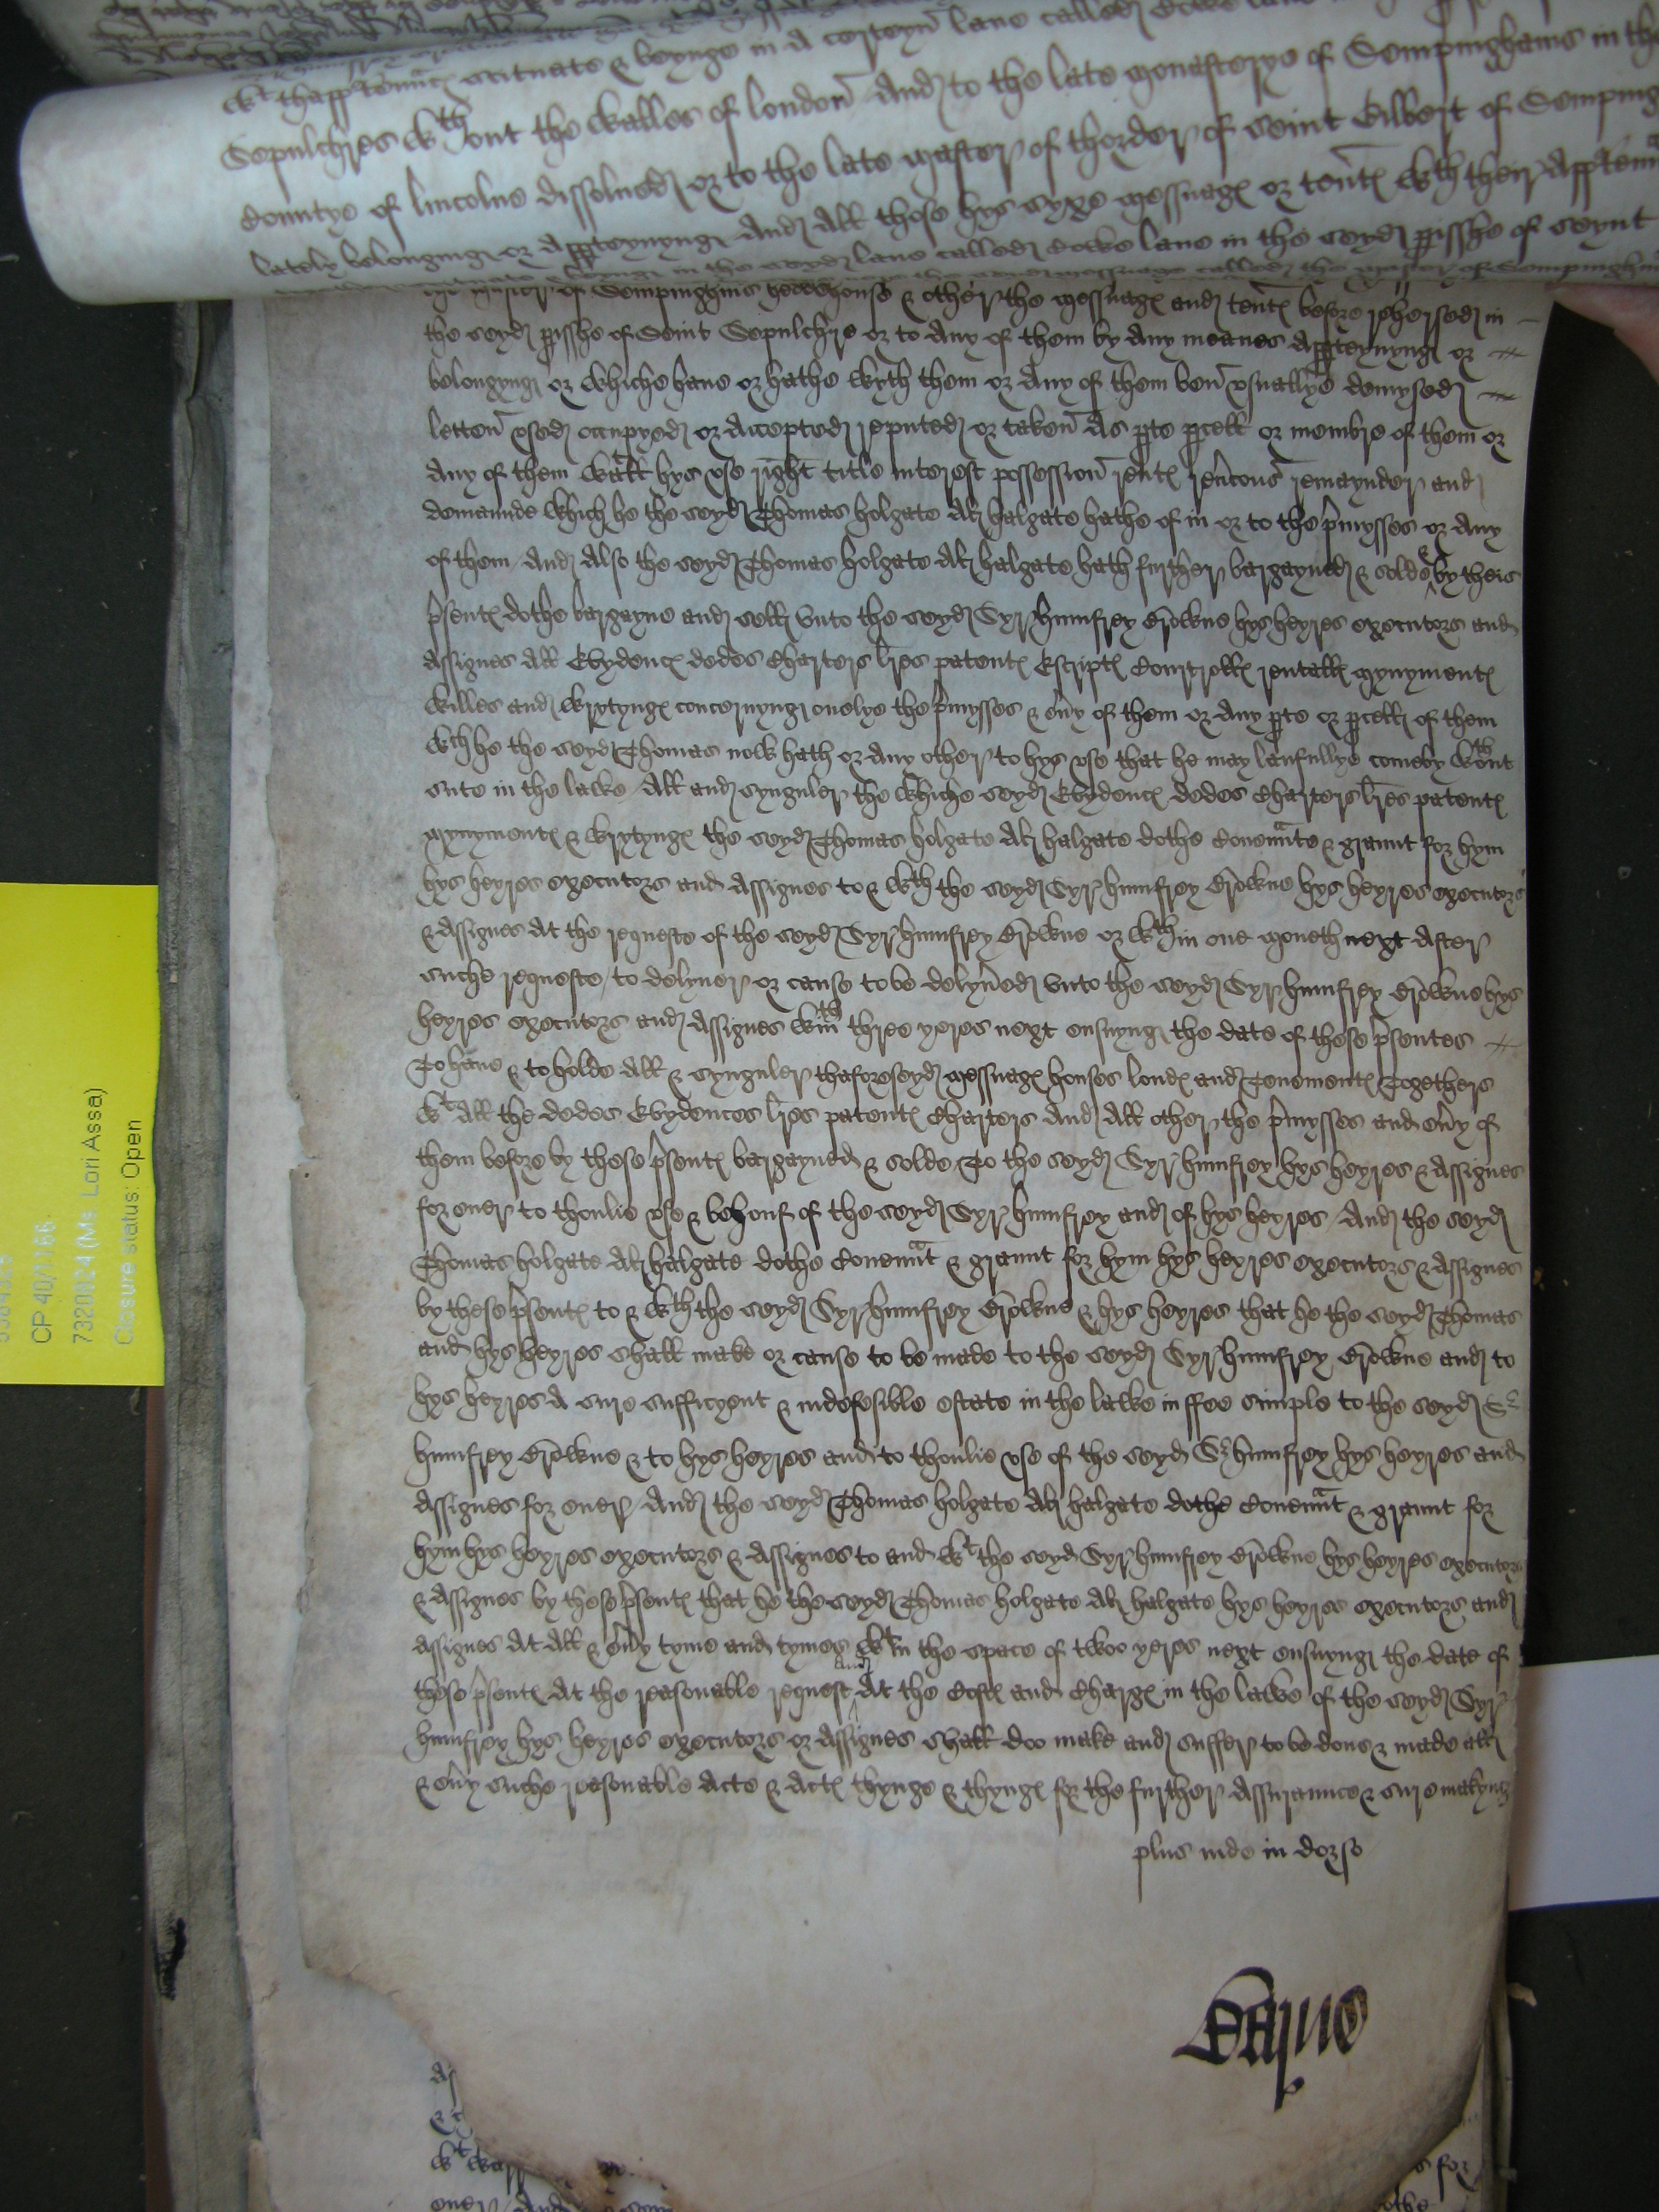 wt thapptennce scituate & beynge in a certeyn lane called Cowe lane in
Sepulchres wthout the walles of london And to the late monasterye of Sempinghams in the
Countye of lincolne dissolued or to the late master of thorder of seint Gilbert of Semping
lately belonging or appteynyng And all those hys syxe messuage or tente wth their apptenn
in the seyd lane called Cowe lane in the seyd pisshe of seynt
the master of Sempinghms hedde house & other the messuage and tente before rehersed in
the seyd pisshe of Seint Sepulchre or to any of them by any meanes appteynyng or
belongyng or whiche haue or hathe wyth them or any of them ben vsuallye demysed
letten vsed occupyed or accepted reputed or taken as pte pcell or membre of them or
any of them wt all hys vse right title interest possession rente reucons remaynder and
demaunde which he the seyd Thomas holgate als halgate hathe of in or to the pmysses or any
of them And Also the seyd Thomas holgate als halgate hath further bargayned & solde & by theis
psente dothe bargayne and sell vnto the seyd Syr humfrey Browne hys heyres executors and
assignes all Evydence dedes Charters lres patente Escripte Courtrolle rentalle mynymente
willes and wrytynge concernyng onelye the pmysses & euy of them or any pte or pcell of them
wch he the seyd Thomas now hath or any other to hys vse that he may laufullye comeby wthout
sute in the lawe All and synguler the whiche seyd Evydence dedes Charters lres patente
mynymente & wrytynge the seyd Thomas holgate als halgate dothe Couenate & graunt for hym
hys heyres executors and assignes to & wth the seyd Syr humfrey Browne hys heyres executors
& assignes at the requeste of the seyd Syr humfrey Browne or wthin one moneth next after
suche requeste to delyuer or cause to be delyued vnto the seyd Syr humfrey Browne hys
heyres executors and assignes wthin three yeres next ensuyng the date of these psentes
To haue & to holde all & synguler thaforeseyd messuage houses londe and Tenemente Togethers
wt all the dedes Evydences lres patente Charters And all other the pmysses and euy of
them before by these psente bargayned & solde To the seyd Syr humfrey hys heyres & assignes
for euer to thonlie vse & behouf of the seyd Syr humfrey and of hys heyres And the seyd
Thomas holgate als halgate dothe Couenat & graunt for hym hys heyres executors & assignes
by these psente to & wth the seyd Syr humfrey Browne & hys heyres that he the seyd Thomas
and hys heyres shall make or cause to be made to the seyd Syr humfrey Browne and to
hys heyres a sure sufficyent & indefesible estate in the lawe in ffee simple to the seyd Sr
humfrey Browne & to hys heyres and to thonlie vse of the seyd Sr humfrey hys heyres and
assignes for euer And the seyd Thomas holgate als halgate dothe Couenat & graunt for
hym hys heyres executors & assignes to and wt the seyd Syr humfrey Browne hys heyres executors
& assignes by these psente that he the seyd Thomas holgate als halgate hys heyres executors and
assignes at all & euy tyme and tymes wtin the space of twoo yeres next ensuyng the date of
these psente at the reasonable request and At the Coste and Charge in the lawe of the seyd Syr
humfrey hys heyres executors or assignes shall doo make and suffer to be done & made all
& euy suche reasonable acte & acte thynge & thynge for the further assuraunce & sure makyng
plus inde in dorso
CP 40/1166
7320924 (Ms. Lori Assa)
Closure status: Open